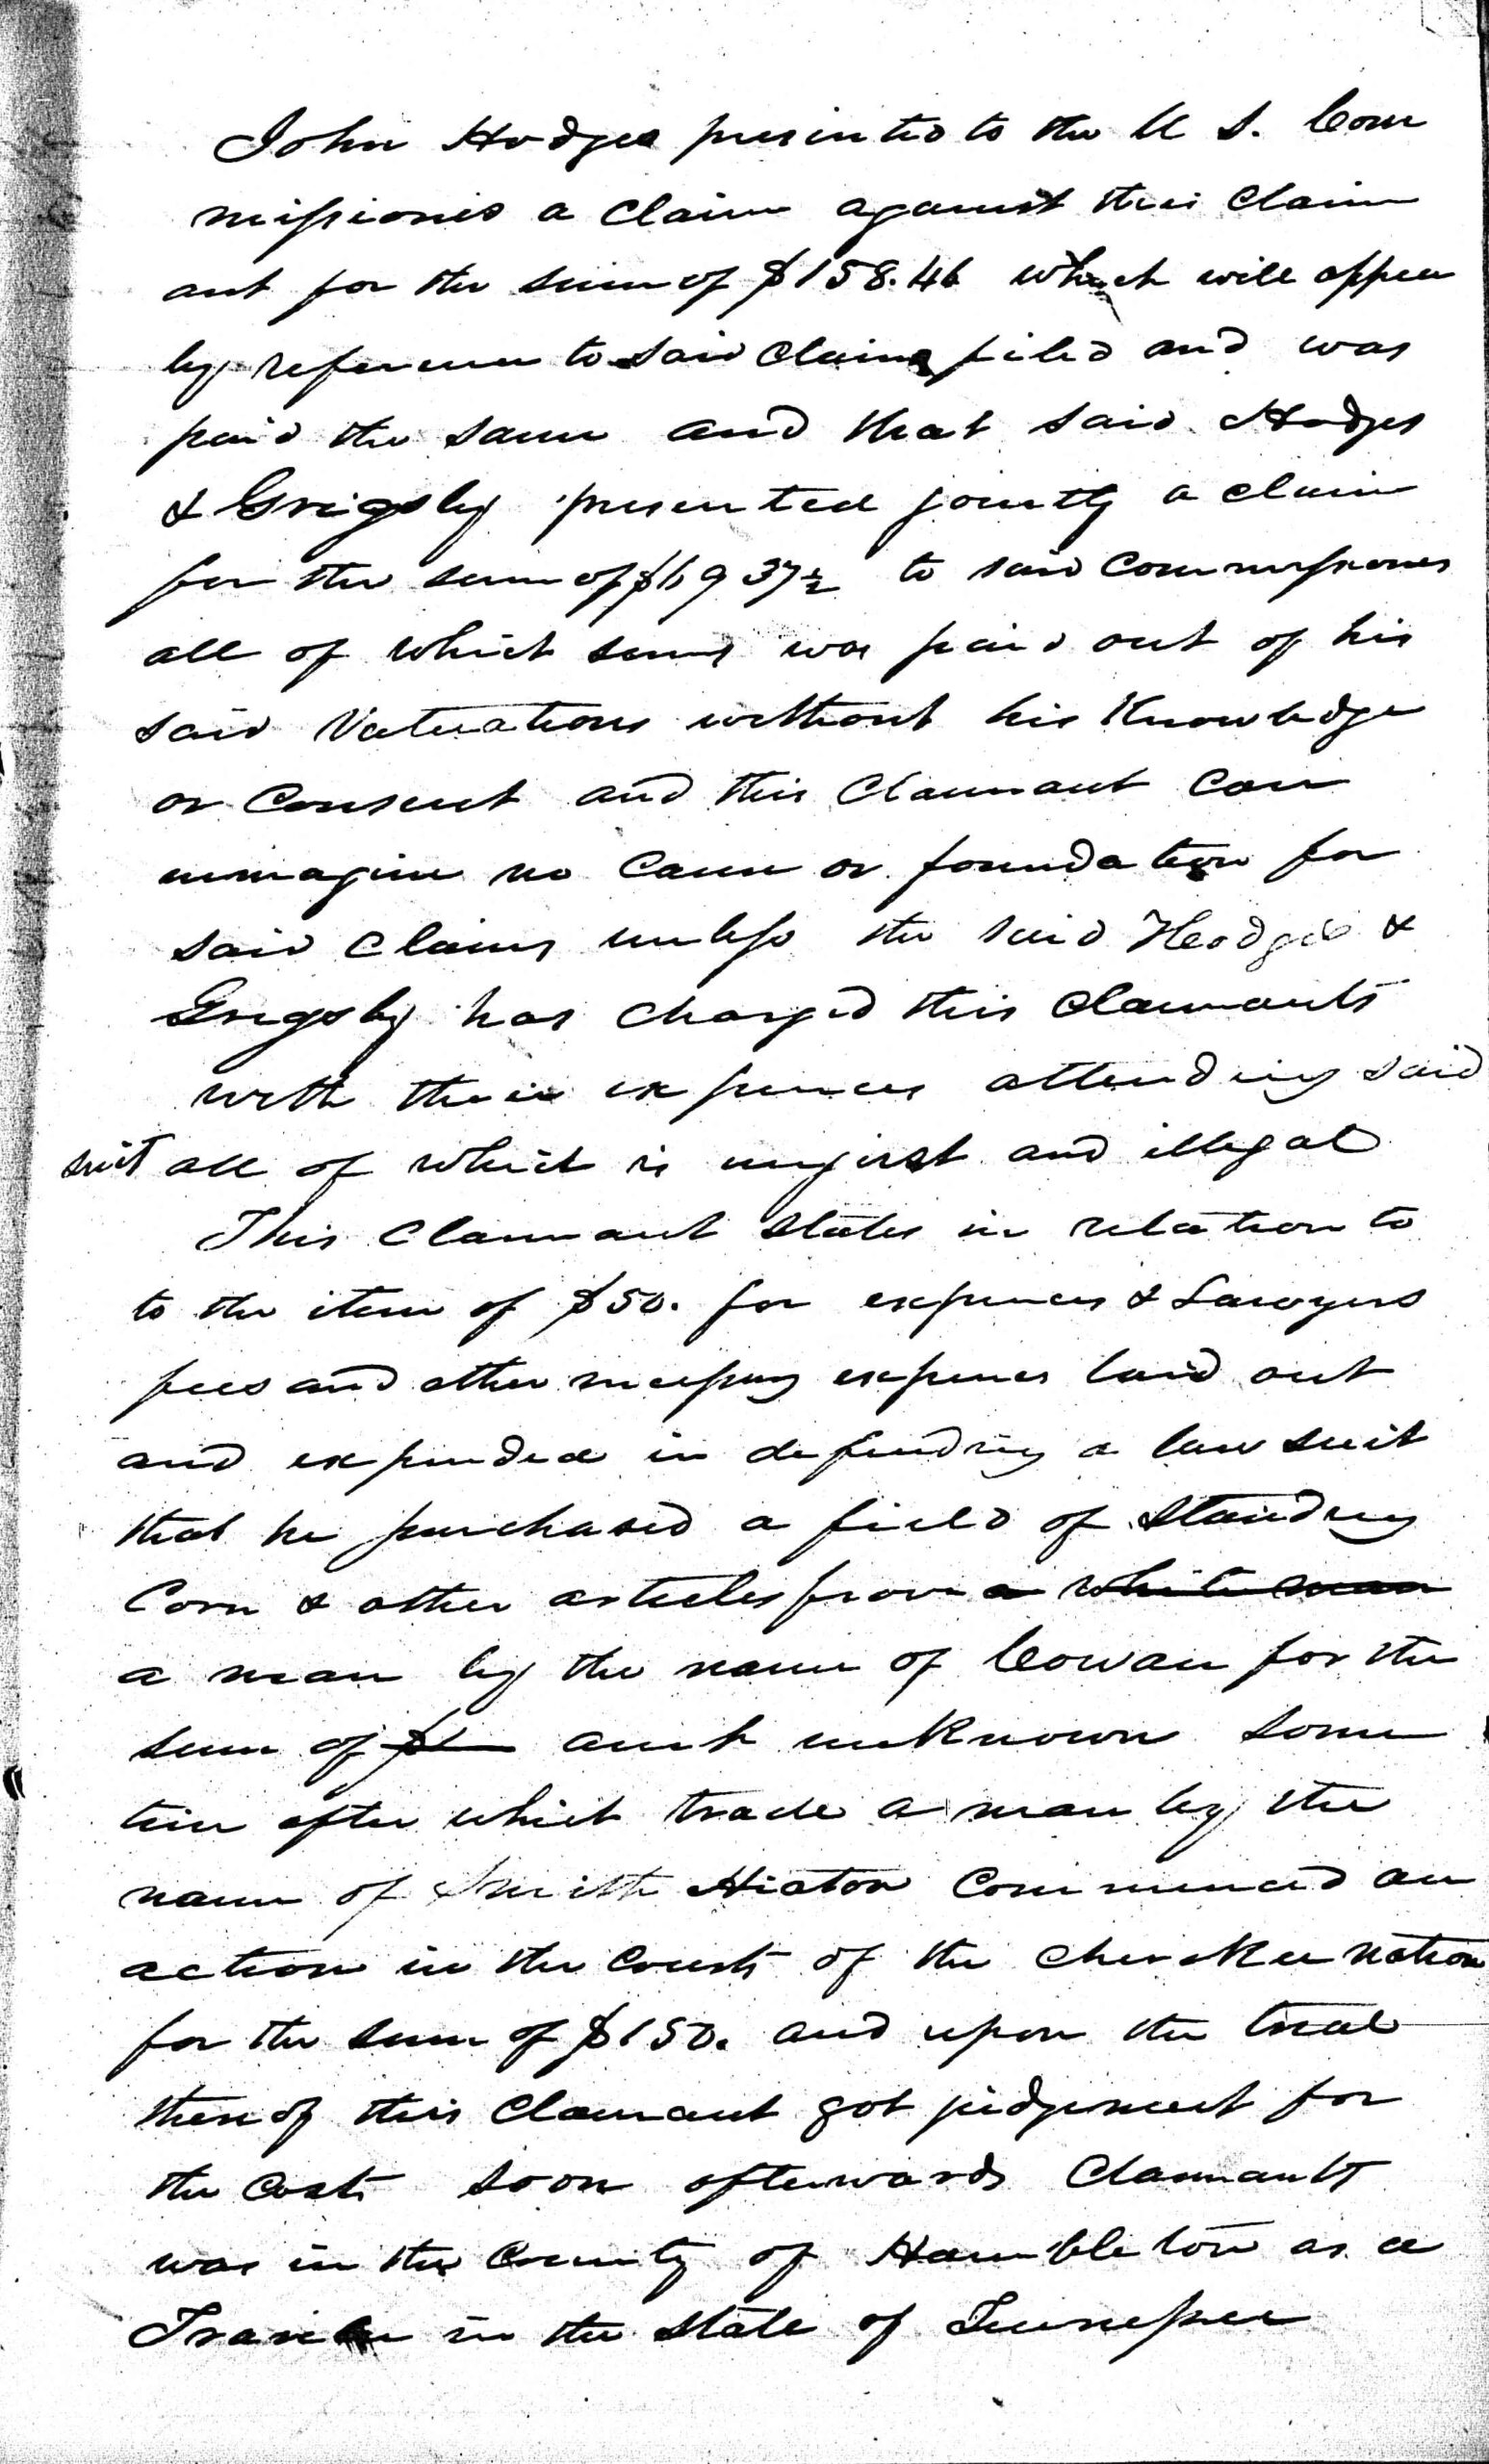 John Hodges presented to the U S. Com
missioners a claim against this claim
ant for the sum of $158.46 which will appear
by reference to said claim filed and was
paid the same and that said Hodges
& Grigsby presented jointly a claim
for the sum of $69 37½ to said Commissioners
all of which sums was paid out of his
said Valuations without his Knowledge
or Consent and this Claimant can
immagine no Cause or foundation for
said claims unless the said Hodges &
Grigsby has charged this Claimants
with their expences attending said
suit all of which is unjust and illegal
This Claimant states in relation to
to the item of $50. for expences & Lawyers
fees and other necessary expences laid out
and expended in defending a law suit
that he purchased a field of standing
Corn & other articles from a white man
a man by the name of Cowan for the
sum of $ amt unknown some
time after which trade a man by the
name of Smith Hiaton Commenced an
action in the Courts of the Cherokee Nation
for the sum of $150. and upon the trial
thereof this Claimant got judgement for
the Costs soon afterwards Claimant
was in the County of Hambleton as a
in the State of Tennessee